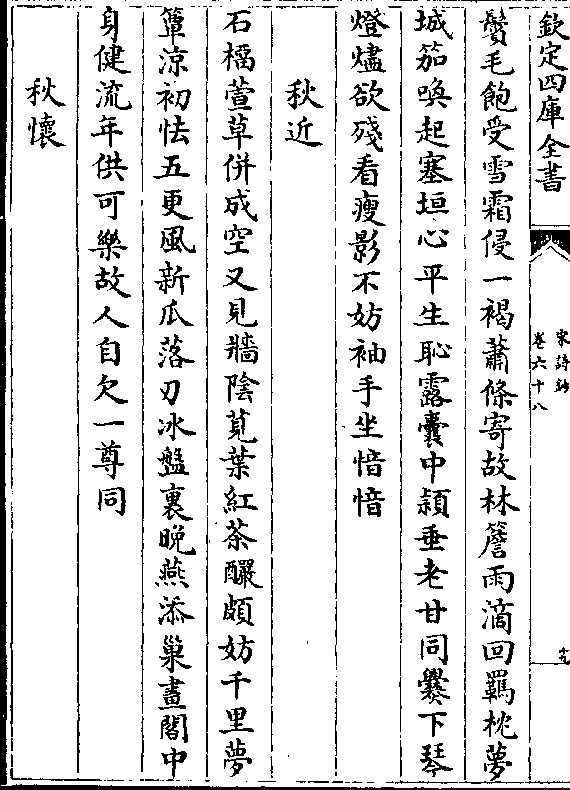 欽定四庫全書
宋詩鈔
卷六十八
鬢毛飽受雪霜侵一褐蕭條寄故林簷雨滴回羈枕夢
城笳喚起塞垣心平生恥露囊中穎垂老甘同爨下琴
燈燼欲殘看瘦影不妨袖手坐愔愔
秋近
石榴萱草併成空又見牆陰莧葉紅茶釅頗妨千里夢
簟涼初怯五更風新瓜落刃冰盤裏晚燕添巢畫閣中
身健流年供可樂故人自欠一尊同
秋懷